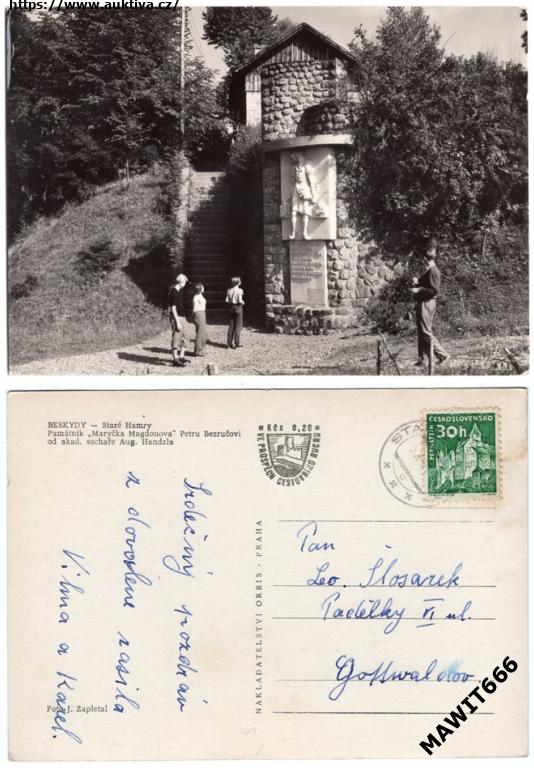 https://www.auktiva.cz/
BESKYDY — Staré Hamry
Památník „Maryčka Magdonova" Petru Bezručovi
od akad. sochaře Aug. Handzla
Kčs 0,20
VE PROSPĚCH CESTOVNÍHO RUCHU
STA
ČESKOSLOVENSKO
PERNŠTEJN
30h
Srdečný pozdrav
z dovolene zasila
Vilma a Karel.
NAKLADATELSTVÍ ORBIS - PRAHA
Pan
Leo. Šlosarek
Padělky VI ul.
Gottwaldov.
Foto J. Zapletal
MAWIT666